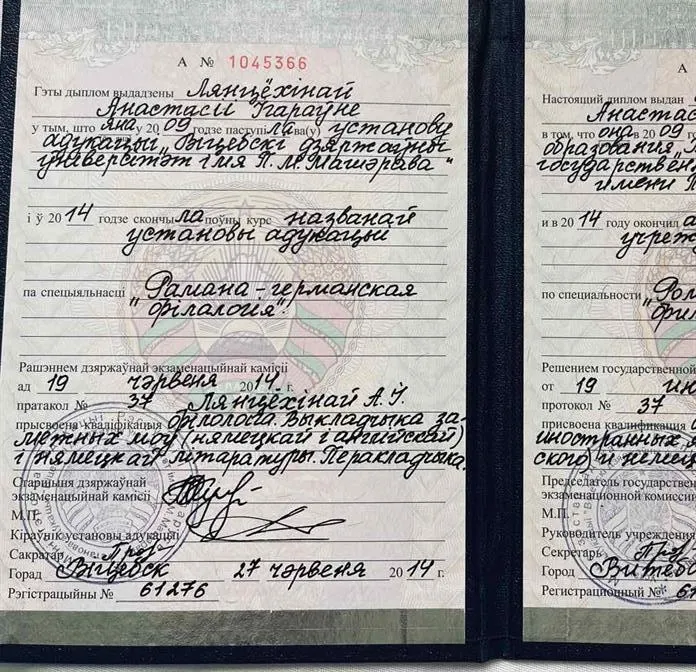 А № 1045366
Гэты дыплом выдадзены Лянцёхінай
Анастасіі Ігараўне
у тым, што яна у 20 09 годзе паступіла ва(у) установу
адукацыі „Віцебскі дзяржаўны
ўніверсітэт імя П.М. Машэрава"
і ў 20 14 годзе скончыла поўны курс названай
установы адукацыі
па спецыяльнасці „Рамана-германская
філалогія".
Рашэннем дзяржаўнай экзаменацыйнай камісіі
ад 19 чэрвеня 2014. г.
пратакол № 37 Лянцёхінай А.Ў.
прысвоена кваліфікацыя філолога. Выкладчыка за-
межных моў (нямецкай і англійскай)
і нямецкай літаратуры. Перакладчыка.
Старшыня дзяржаўнай
экзаменацыйнай камісіі
М.П.
Кіраўнік установы адукацыі
Сакратар
Горад Віцебск 27 чэрвеня 2014 г.
Рэгістрацыйны № 61276
А
Настоящий диплом выдан
Анастас
в том, что она в 20 09 г
образования „
государствен
имени П
и в 20 14 году окончил а
учреж
по специальности „Ром
фил
Решением государственной
от 19 ин
протокол № 37
присвоена квалификация
иностранных я
ского) и немец
Председатель государстве
экзаменационной комиссии
М.П.
Руководитель учреждения
Секретарь
Город Витебс
Регистрационный № 61